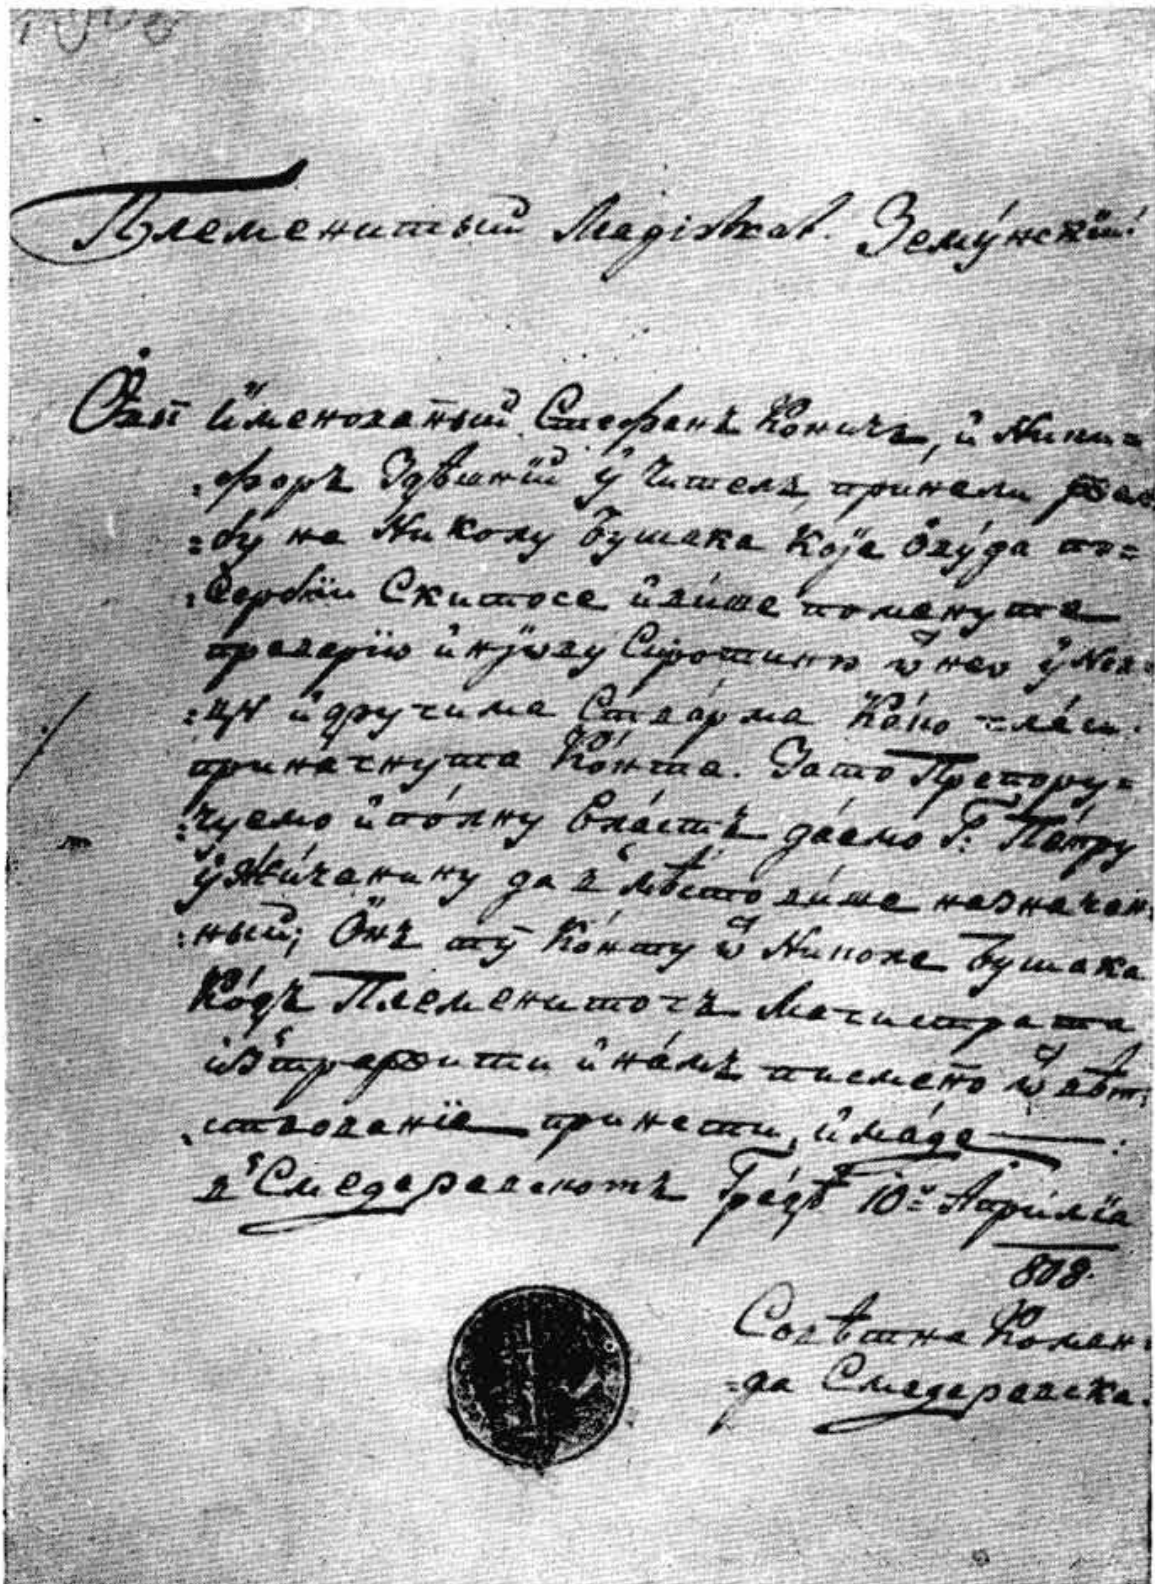 1808
Племенитый Magistrat. Земунскій!
Овы именованый Стефанъ Коничъ, и Ники=
=форъ Здѣшній учитель, принели
=бу на Николу Бушака Која овуда по=
=Сербіи Скитосе и више поменута
преварію и нјову Сіротиню ѿ нео у Нов=
=цы и другима Стварма Како гласи
приначнута Конта. Зато Препору=
=чуемо и полну Власть даемо Г: Петру
Ужичанину да в мѣсто више назначен=
=ный; Онъ ту Конту ѿ Николе Бушака
Кодъ Племенитогъ Магистрата
изтражити и намъ писмено ѿвѣт=
=ствованіе принети, имаде
в Смедеревскомъ Градѣ 10= Апріліа
808.
Совѣтна Коман=
=да Смедеревска.